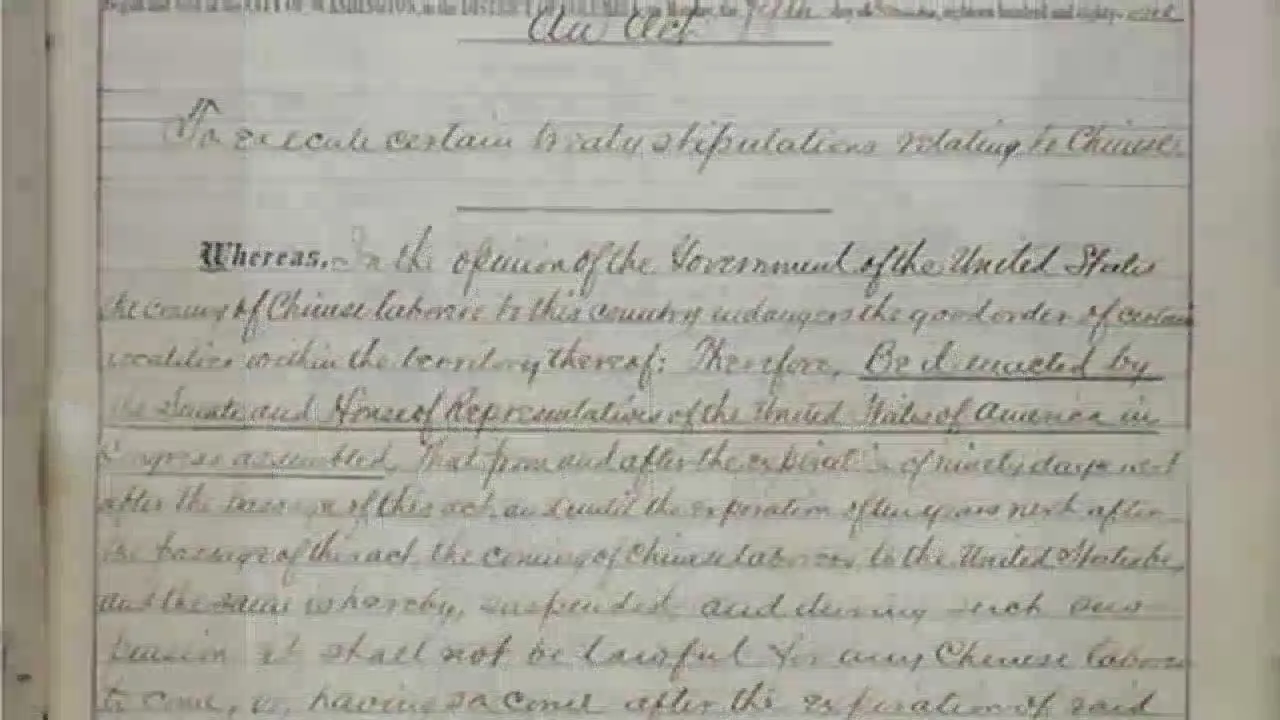 CITY OF WASHINGTON, in the DISTRICT OF day of eighteen hundred and eighty-
An Act
To execute certain treaty stipulations relating to Chinese
Whereas, In the opinion of the Government of the United States
the coming of Chinese laborers to this country endangers the good order of certain
localities within the territory thereof: Therefore, Be it enacted by
the Senate and House of Representatives of the United States of America in
Congress assembled, That from and after the expiration of ninety days next
after the passage of this act, and until the expiration of ten years next after
the passage of this act, the coming of Chinese laborers to the United States be,
and the same is hereby, suspended, and during such sus-
pension it shall not be lawful for any Chinese laborer
to come, or, having so come after the expiration of said